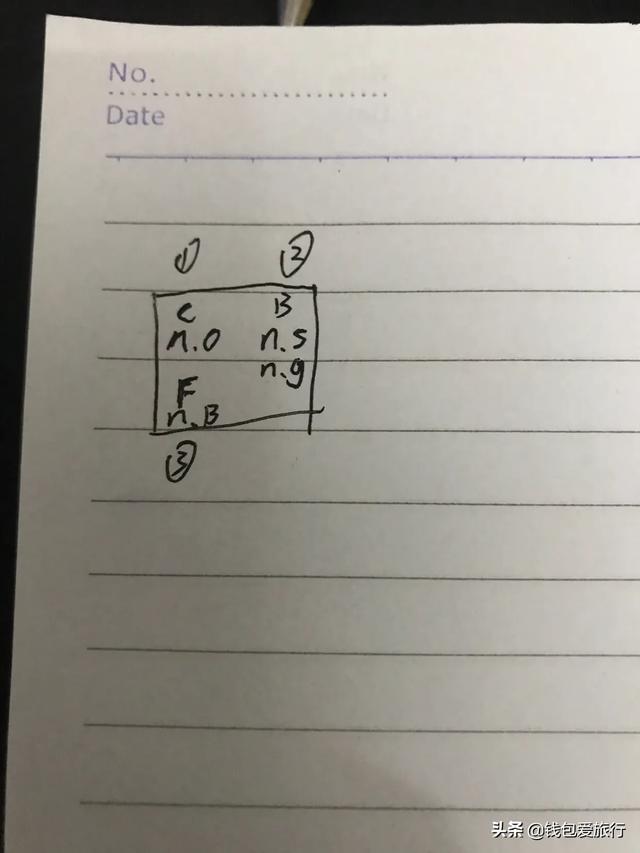 No.
Date
① ②
C B
n.o n.s
n.g
F
n.B
③
头条 @钱包爱旅行